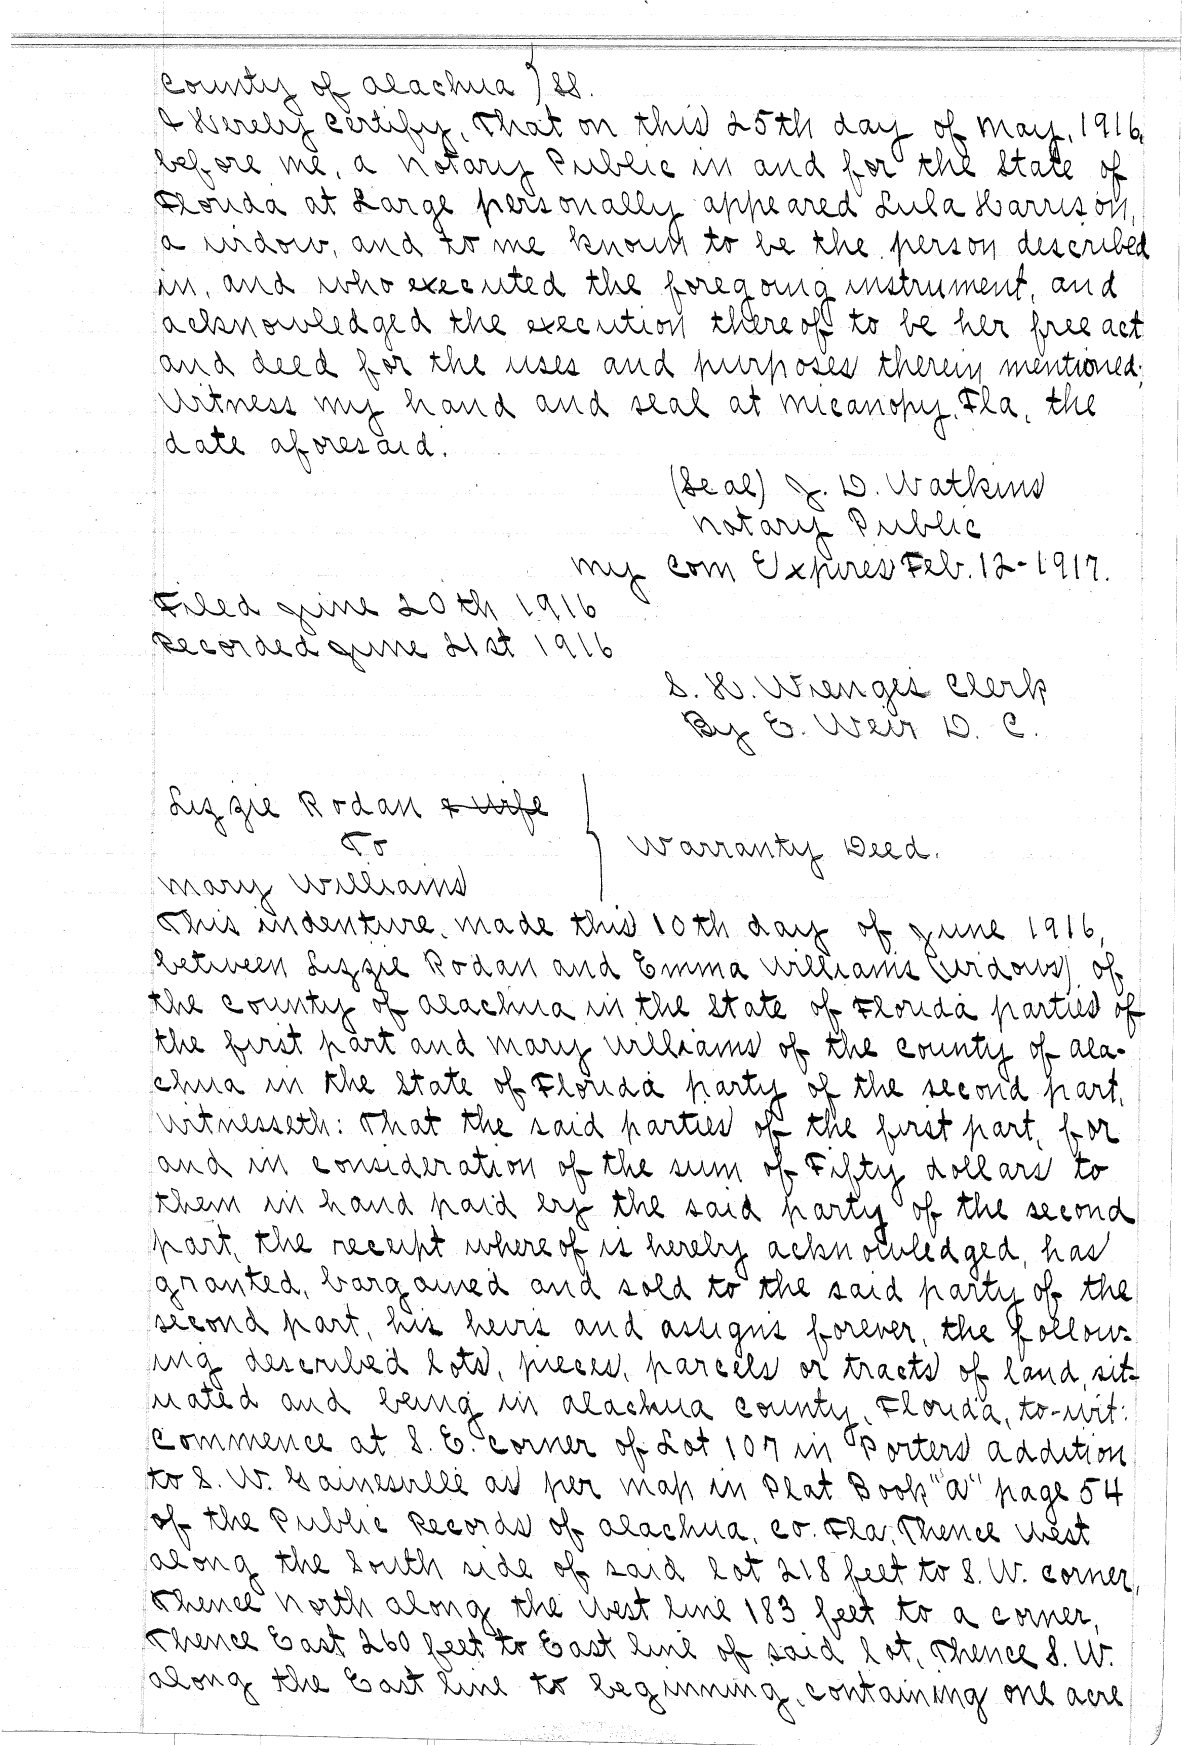 County of Alachua } SS.
I Hereby Certify, That on this 25th day of May, 1916,
before me, a Notary Public in and for the State of
Florida at Large personally appeared Lula Harrison,
a widow, and to me known to be the person described
in, and who executed the foregoing instrument, and
acknowledged the execution thereof to be her free act
and deed for the uses and purposes therein mentioned;
Witness my hand and seal at Micanopy, Fla, the
date aforesaid.
(Seal) J. D. Watkins
Notary Public
My Com Expires Feb. 12-1917.
Filed June 20th 1916
Recorded June 21st 1916
S. H. Wienges Clerk
By E. Weir D. C.
Lizzie Rodan & Wife
To
Warranty Deed.
Mary Williams
This indenture, made this 10th day of June 1916,
between Lizzie Rodan and Emma Williams (widows) of
the County of Alachua in the State of Florida parties of
the first part and Mary Williams of the County of Ala-
chua in the State of Florida party of the second part,
Witnesseth: That the said parties of the first part, for
and in consideration of the sum of Fifty dollars to
them in hand paid by the said party of the second
part, the receipt whereof is hereby acknowledged, has
granted, bargained and sold to the said party of the
second part, his heirs and assigns forever, the follow-
ing described lots, pieces, parcels or tracts of land, sit-
uated and being in Alachua County, Florida, to-wit:
Commence at S. E. corner of Lot 107 in Porters addition
to S. W. Gainesville as per map in Plat Book "A" page 54
of the Public Records of Alachua, Co. Fla; Thence West
along the South side of said lot 218 feet to S. W. corner,
Thence North along the West line 183 feet to a corner,
Thence East 260 feet to East line of said lot, Thence S. W.
along the East line to beginning, containing one acre